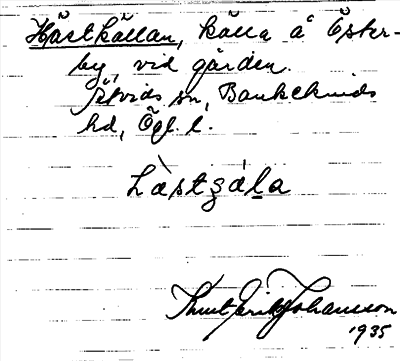 Hästkällan, källa å Öster-
by, vid gården.
Åtvids sn, Bankekinds
hd, Ögl. l.
hàstʒála
Knut Erik Johansson
1935